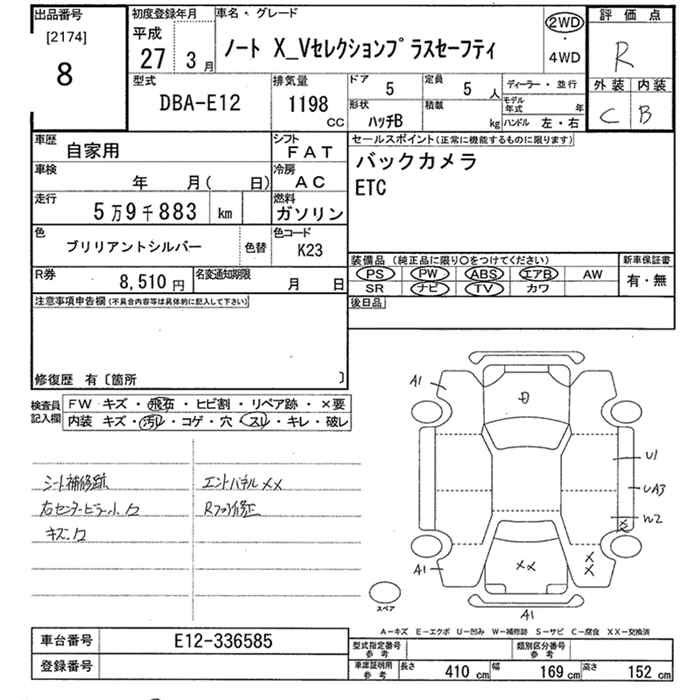 出品番号
[2174]
8
初度登録年月
平成
27 3 月
車名・グレード
ノート X_Vセレクションプラスセーフティ
2WD
・
4WD
評価点
R
外装 内装
C B
型式
DBA-E12
排気量
1198
CC
ドア
5
定員
5 人
形状
ハッチB
積載
kg
ディーラー・並行
モデル年式 年
ハンドル 左・右
車歴
自家用
シフト
FAT
車検
年 月( 日)
冷房
AC
走行
5万9千883 km
燃料
ガソリン
色
ブリリアントシルバー
色替
色コード
K23
R券
8,510 円
名変通知期限
月 日
セールスポイント(正常に機能するものに限ります)
バックカメラ
ETC
装備品(純正品に限り○をつけてください)
PS PW ABS エアB AW
SR ナビ TV カワ
新車保証書
有・無
後日品
注意事項申告欄(不具合内容等は具体的に記入して下さい)
修復歴 有〔箇所 〕
検査員
記入欄
FW キズ・飛石・ヒビ割・リペア跡・×要
内装 キズ・汚レ・コゲ・穴・スレ・キレ・破レ
シート補修跡
エンドパネルXX
右センターピラー小ワ
Rフロア修正
キズ、ワ
A1
U1
UA3
W2
X
XX
X
X
A1
A1
スペア
A-キズ E-エクボ U-凹み W-補修跡 S-サビ C-腐食 XX-交換済
車台番号
E12-336585
登録番号
型式指定番号
参考
類別区分番号
参考
車庫証明用
参考
長さ 410 cm 幅 169 cm 高さ 152 cm